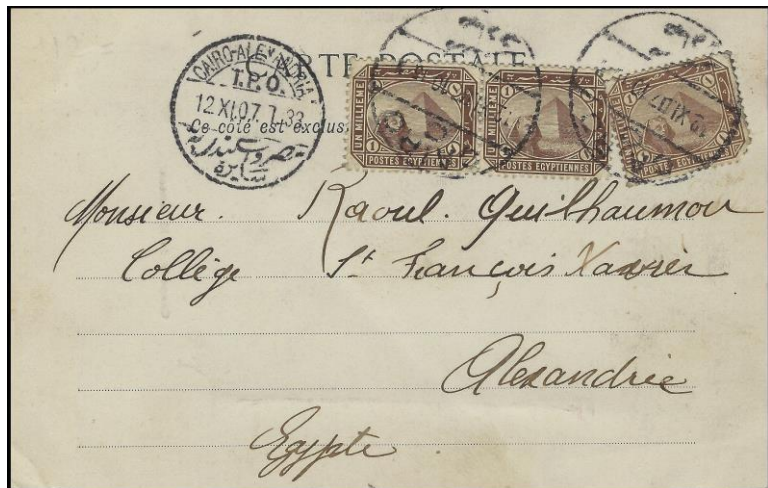 CARTE POSTALE
CAIRO-ALEXANDRIA
T.P.O.
12.XI.07.7 33
Ce côté est exclus
UN MILLIEME
POSTES EGYPTIENNES
POSTES EGYPTIENNES
Monsieur. Raoul. Guilhaumou
Collège St François Xavier
Alexandrie
Egypte